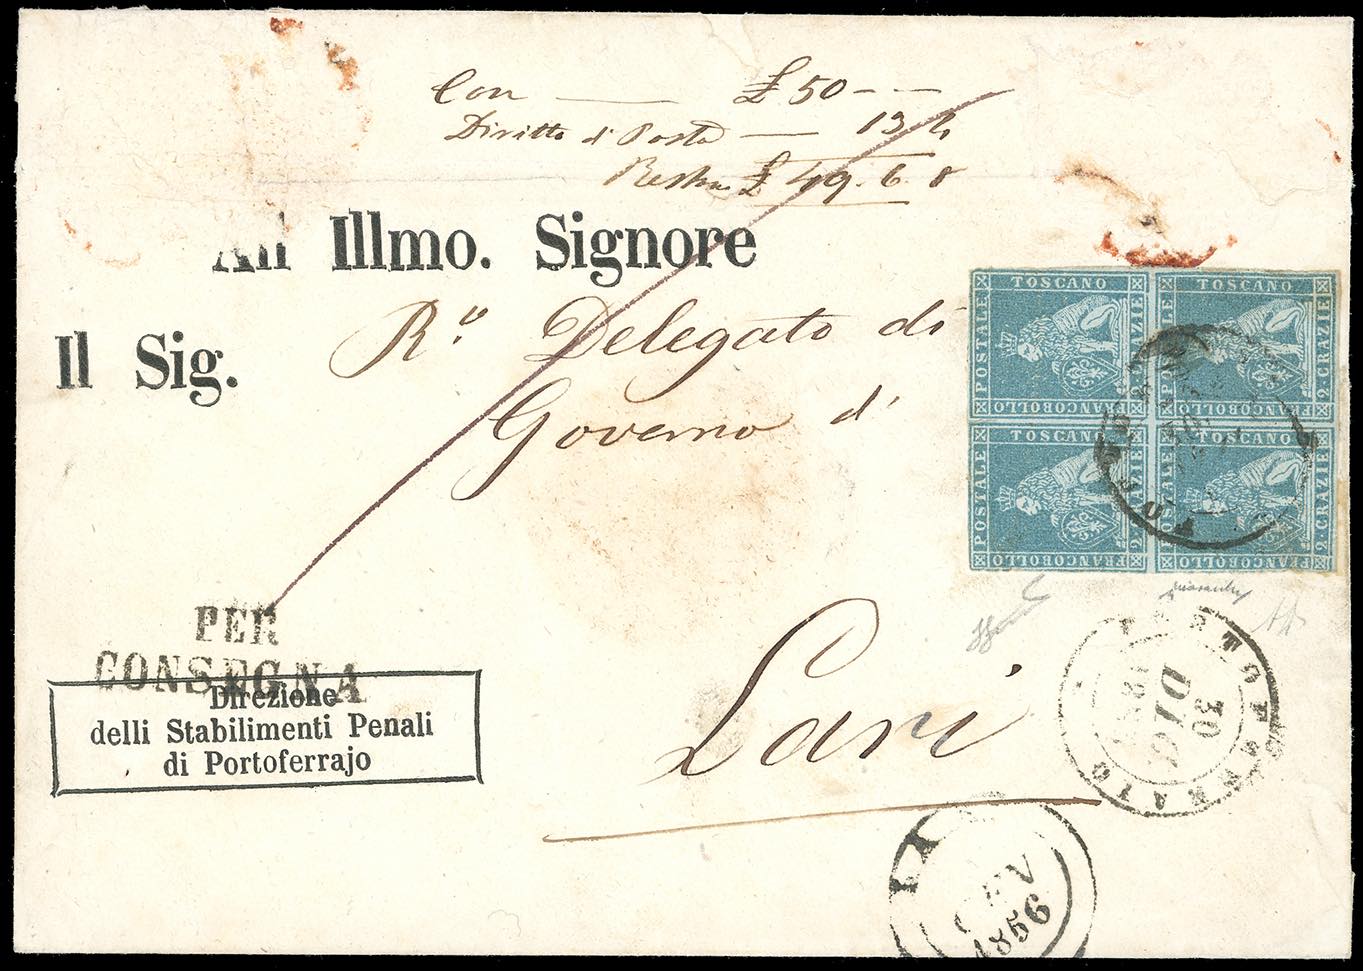 Con — £ 50 — —
Diritto di Posta — 13 4
Resta £ 49. 6. 8
All Illmo. Signore
Il Sig.
R.º Delegato di
Governo d'
Lari
TOSCANO
POSTALE
FRANCOBOLLO
2 CRAZIE
TOSCANO
POSTALE
FRANCOBOLLO
2 CRAZIE
TOSCANO
POSTALE
FRANCOBOLLO
2 CRAZIE
TOSCANO
POSTALE
FRANCOBOLLO
2 CRAZIE
PER
CONSEGNA
Direzione
delli Stabilimenti Penali
di Portoferrajo
PORTOFERRAIO
30
DIC
1856